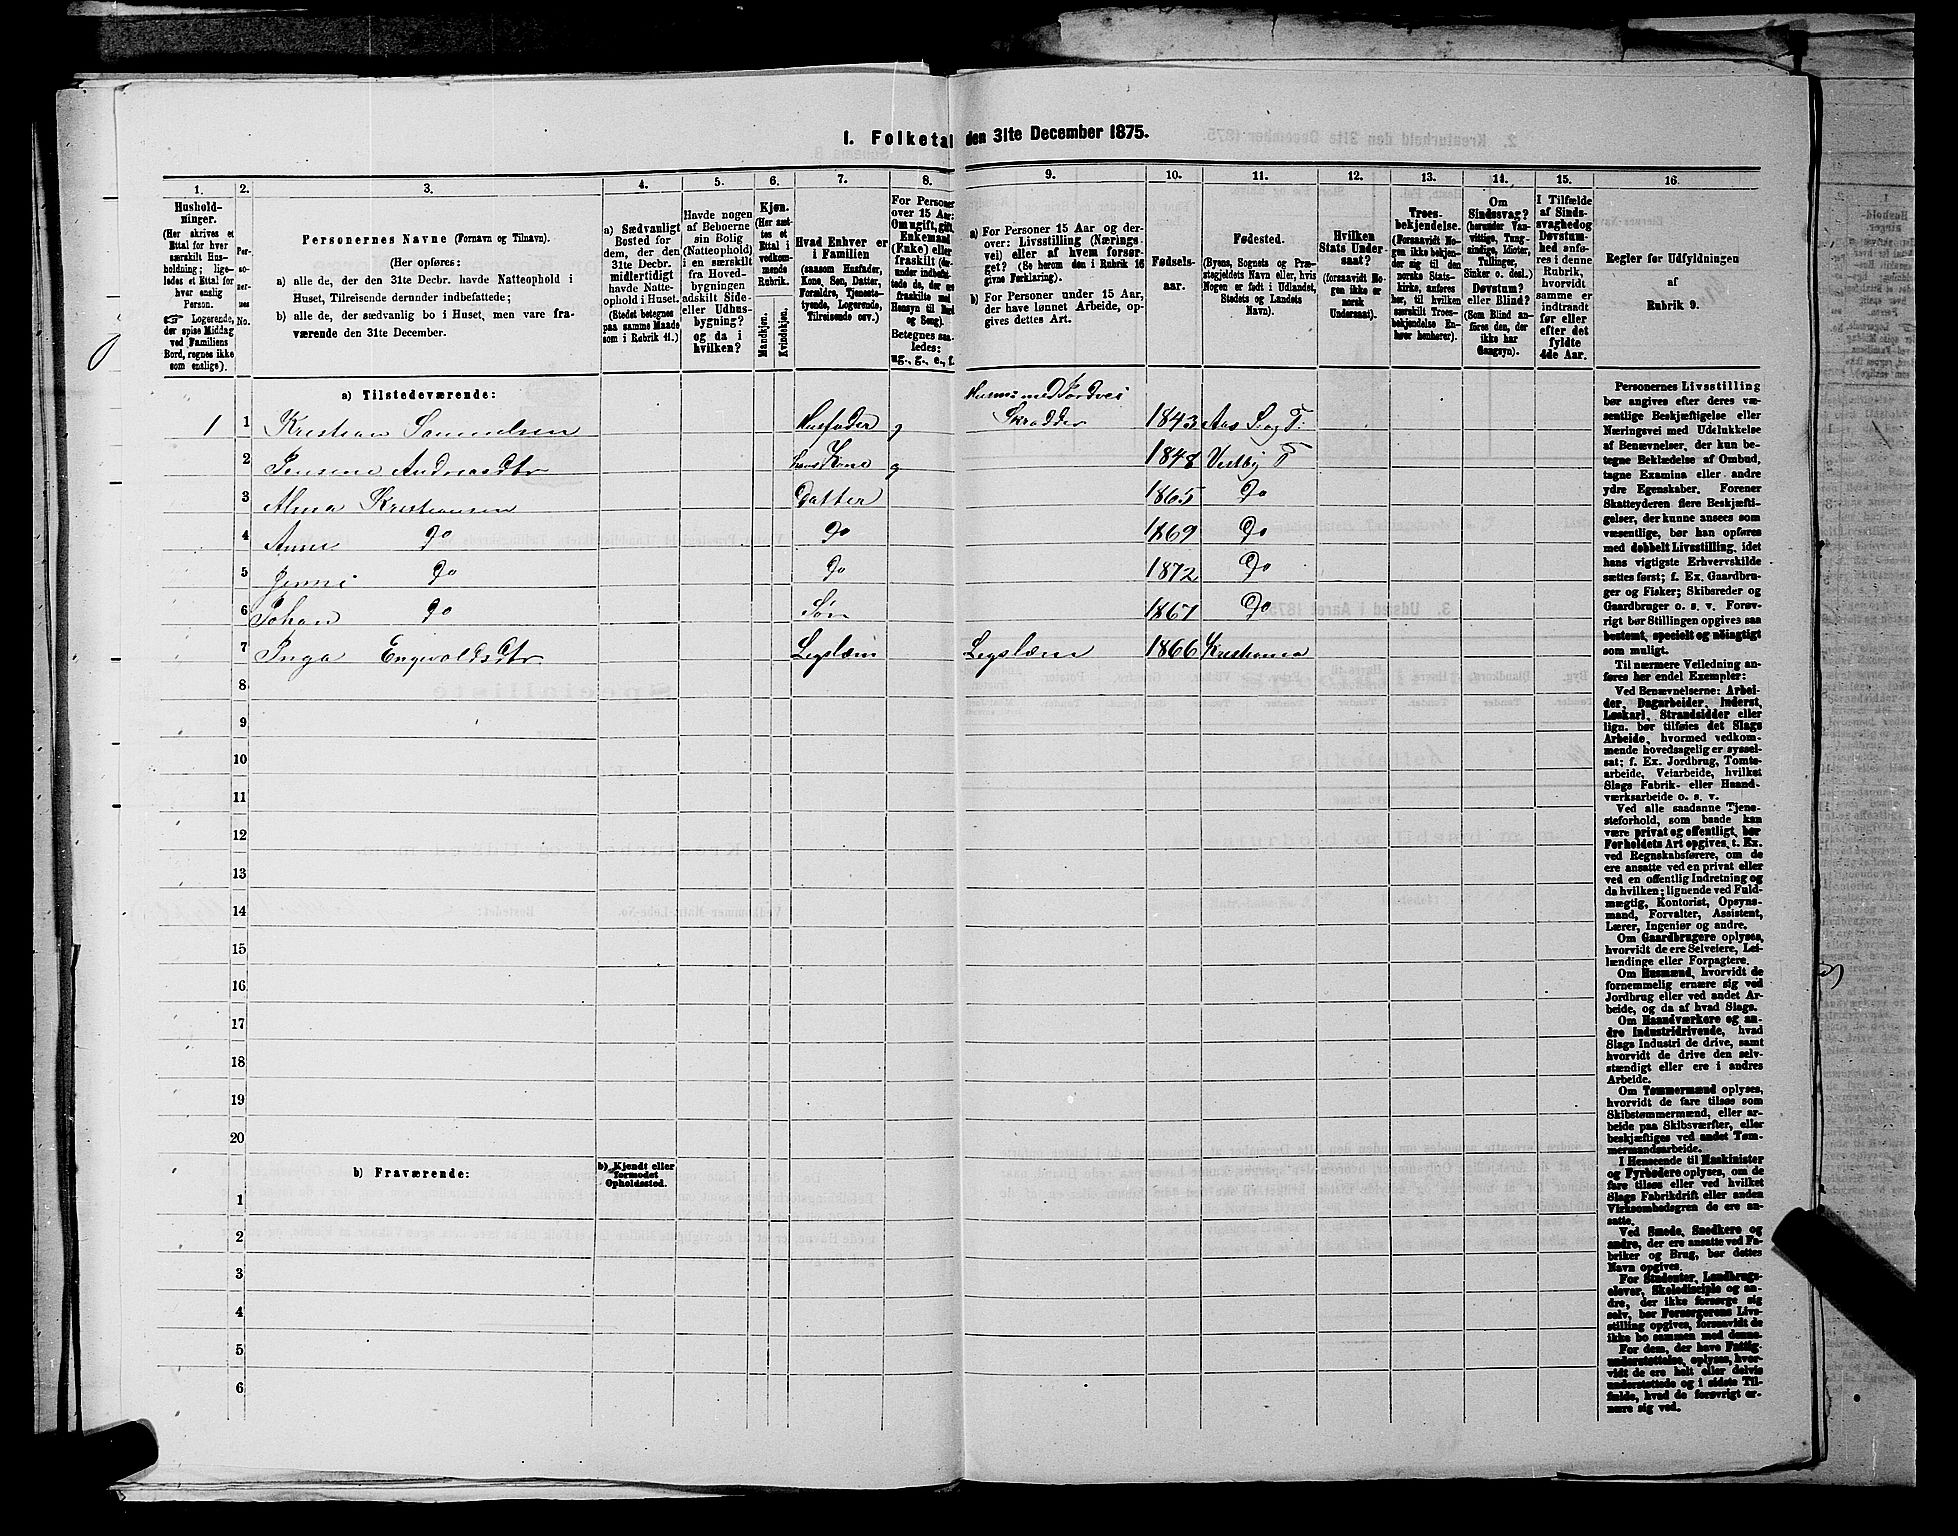 1. Folketal den 31te December 1875.
1. 2. 3. 4. 5. 6. 7. 8. 9. 10. 11. 12. 13. 14. 15. 16.
Hushold-
ninger.
(Her skrives et
Ettal for hver
særskilt Hus-
holdning; lige-
ledes et Ettal for
hver enslig
Person.
☞ Logerende,
der spise Middag
ved Familiens
Bord, regnes ikke
som enslige).
Per-
so-
ner-
nes
No.
Personernes Navne (Fornavn og Tilnavn).
(Her opføres:
a) alle de, der den 31te Decbr. havde Natteophold i
Huset, Tilreisende derunder indbefattede;
b) alle de, der sædvanlig bo i Huset, men vare fra-
værende den 31te December.
a) Sædvanligt
Bosted for
dem, der den
31te Decbr.
midlertidigt
havde Natte-
ophold i Huset.
(Stedet betegnes
paa samme Maade
som i Rubrik 11.)
Havde nogen
af Beboerne
sin Bolig
(Natteophold)
i en særskilt
fra Hoved-
bygningen
adskilt Side-
eller Udhus-
bygning?
og da i
hvilken?
Kjøn.
(Her sæt-
tes et
Ettal i
vedkom-
mende
Rubrik.
Mandkjøn.
Kvindekjøn.
Hvad Enhver er
i Familien
(saasom Husfader,
Kone, Søn, Datter,
Forældre, Tjeneste-
tyende, Logerende,
Tilreisende osv.)
For Personer
over 15 Aar:
Om ugift, gift,
Enkemand
(Enke) eller
fraskilt
Betegnes saa-
ledes:
ug., g., e., f.
a) For Personer 15 Aar og der-
over: Livsstilling (Nærings-
vei) eller af hvem forsør-
get? (Se herom den i Rubrik 16
givne Forklaring).
b) For Personer under 15 Aar,
der have lønnet Arbeide, op-
gives dettes Art.
Fødsels-
aar.
Fødested.
(Byens, Sognets og Præ-
stegjeldets Navn eller, hvis
Nogen er født i Udlandet,
Stedets og Landets
Navn).
Hvilken
Stats Under-
saat?
(forsaavidt No-
gen ikke er
norsk
Undersaat).
Troes-
bekjendelse.
(Forsaavidt No-
gen ikke bekjen-
der sig til den
norske Stats-
kirke, anføres
her, til hvilken
særskilt Troes-
bekjendelse En-
hver henhører).
Om
Sindssvag?
(herunder Van-
vittige, Tung-
sindige, Idioter,
Tullinger,
Sinker o. desl.)
Døvstum?
eller Blind?
(Som Blind an-
føres den, der
ikke har
Gangsyn).
I Tilfælde
af Sinds-
svaghed og
Døvstum-
hed anfø-
res i denne
Rubrik,
hvorvidt
samme er
indtraadt
før eller
efter det
fyldte
4de Aar.
Regler for Udfyldningen
af
Rubrik 9.
a) Tilstedeværende:
1 1 Kristian Samuelsen Husfader g Husm: med Jord Skrædder 1843 Aas Sog P:
2 Jensine Andreasdtr hans Kone g 1848 Vestby P
3 Alma Kristiansen Datter 1865 Do
4 Anna Do Do 1869 Do
5 Jenni Do Do 1872 Do
6 Johan Do Søn 1867 Do
7 Inga Engvoldsdtr Legslæm Legslæm 1866 Kristiania
8
9
10
11
12
13
14
15
16
17
18
19
20
b) Fraværende:
b) Kjendt eller
formodet
Opholdssted.
1
2
3
4
5
6
Personernes Livsstilling
bør angives efter deres væ-
sentlige Beskjæftigelse eller
Næringsvei med Udelukkelse
af Benævnelser, der kun be-
tegne Beklædelse af Ombud,
tagne Examina eller andre
ydre Egenskaber. Forener
Skatteyderen flere Beskjæfti-
gelser, der kunne ansees som
væsentlige, bør han opføres
med dobbelt Livsstilling, idet
hans vigtigste Erhvervskilde
sættes først; f. Ex. Gaardbru-
ger og Fisker; Skibsreder og
Gaardbruger o. s. v. Forøv-
rigt bør Stillingen opgives saa
bestemt, specielt og nøiagtigt
som muligt.
Til nærmere Veiledning an-
føres her endel Exempler:
Ved Benævnelserne: Arbei-
der, Dagarbeider, Inderst,
Løskarl, Strandsidder eller
lign. bør tilføies det Slags
Arbeide, hvormed vedkom-
mende hovedsagelig er syssel-
sat; f. Ex. Jordbrug, Tomte-
arbeide, Veiarbeide, hvilket
Slags Fabrik- eller Haand-
værksarbeide o. s. v.
Ved alle saadanne Tjene-
steforhold, som baade kan
være privat og offentligt, bør
Forholdets Art opgives, t. Ex.
ved Regnskabsførere, om de
ere ansatte ved en privat eller
ved en offentlig Indretning og
da hvilken; lignende ved Fuld-
mægtig, Kontorist, Opsyns-
mand, Forvalter, Assistent,
Lærer, Ingeniør og andre.
Om Gaardbrugere oplyses,
hvorvidt de ere Selveiere, Lei-
lændinge eller Forpagtere.
Om Husmænd, hvorvidt de
fornemmelig ernære sig ved
Jordbrug eller ved andet Ar-
beide, og da af hvad Slags.
Om Haandværkere og an-
dre Industridrivende, hvad
Slags Industri de drive, samt
hvorvidt de drive den selv-
stændigt eller ere i andres
Arbeide.
Om Tømmermænd oplyses,
hvorvidt de fare tilsøs som
Skibstømmermænd, eller ar-
beide paa Skibsværfter, eller
beskjæftiges ved andet Tøm-
mermandsarbeide.
I Henseende til Maskinister
og Fyrbødere oplyses, om de
fare tilsøs eller ved hvilket
Slags Fabrikdrift eller anden
Virksomhedsgren de ere an-
satte.
Ved Smede, Snedkere og
andre, der ere ansatte ved Fa-
briker og Brug, bør dettes
Navn opgives.
For Studenter, Landbrugs-
elever, Skoledisciple og an-
dre, der ikke forsørge sig
selv, bør Forsørgerens Livs-
stilling opgives, forsaavidt de
ikke bo sammen med denne.
For dem, der have Fattig-
understøttelse, oplyses, hvor-
vidt de ere helt eller delvis
understøttede og i sidste Til-
fælde, hvad de forøvrigt er-
nære sig ved.